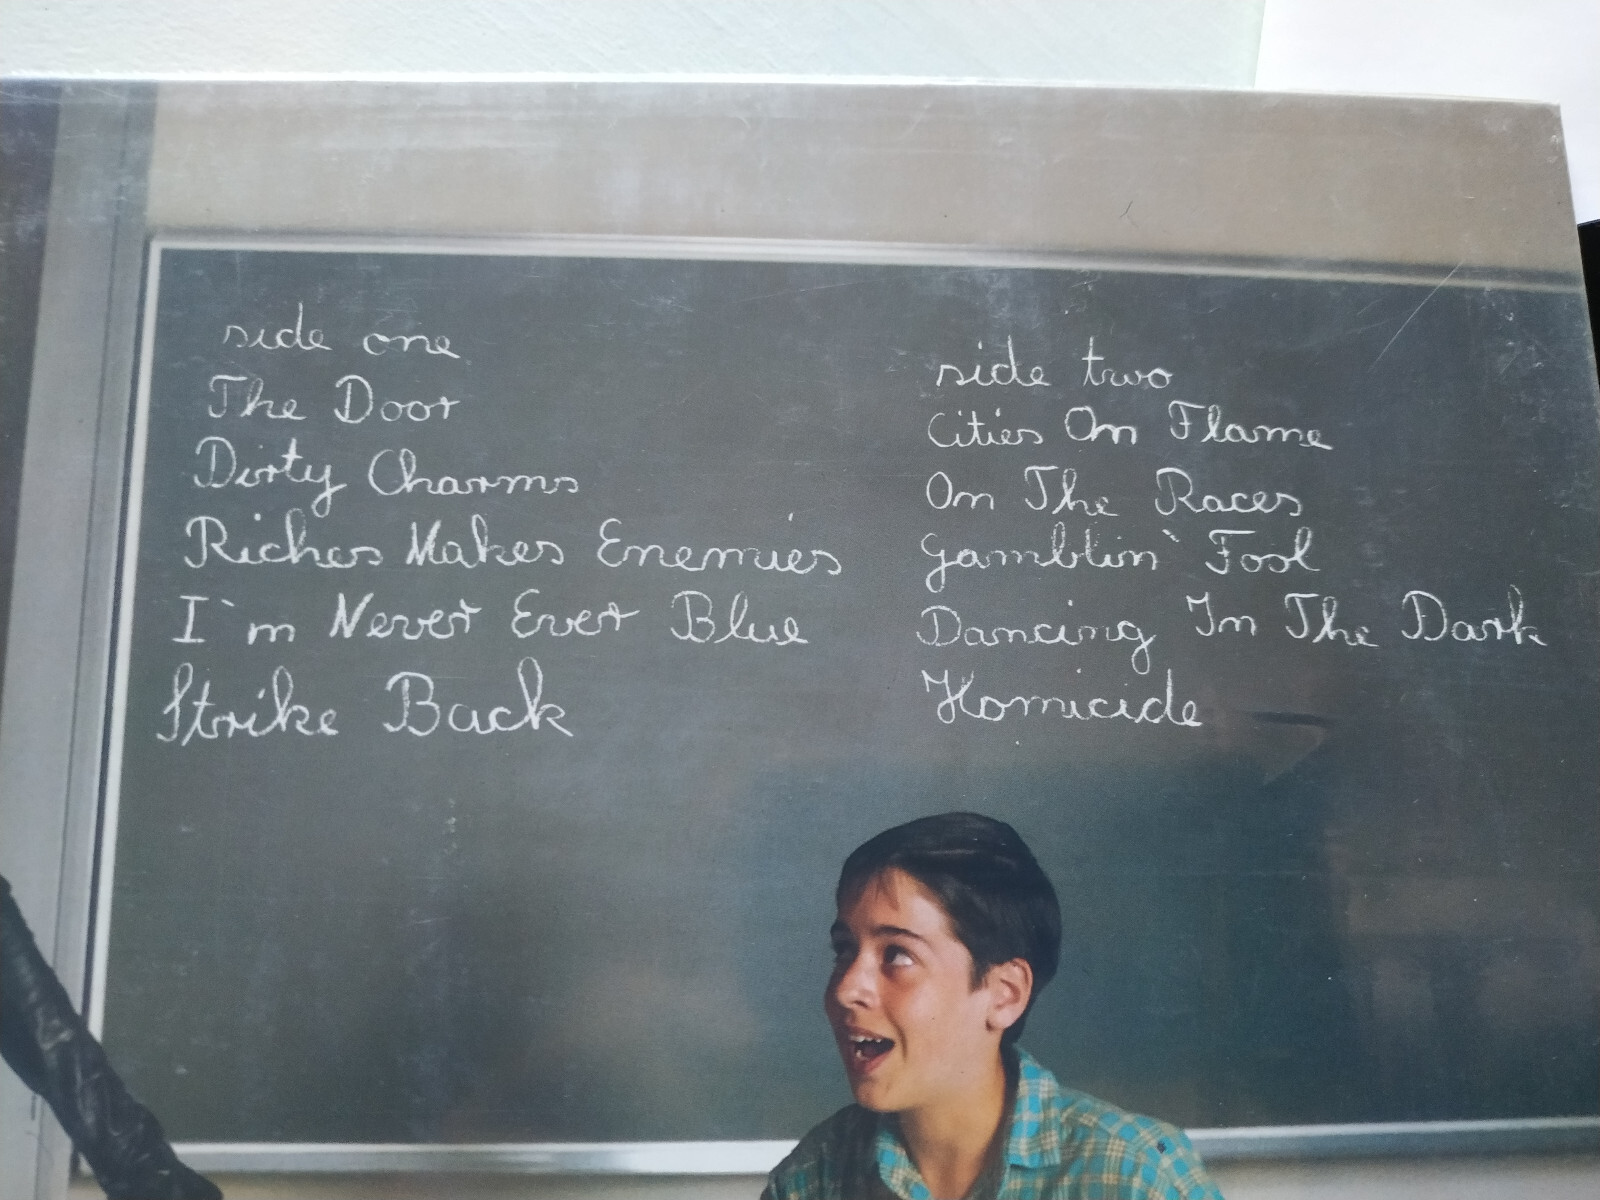 side one
The Door
Dirty Charms
Riches Makes Enemies
I`m Never Ever Blue
Strike Back
side two
Cities On Flame
On The Races
Gamblin` Fool
Dancing In The Dark
Homicide